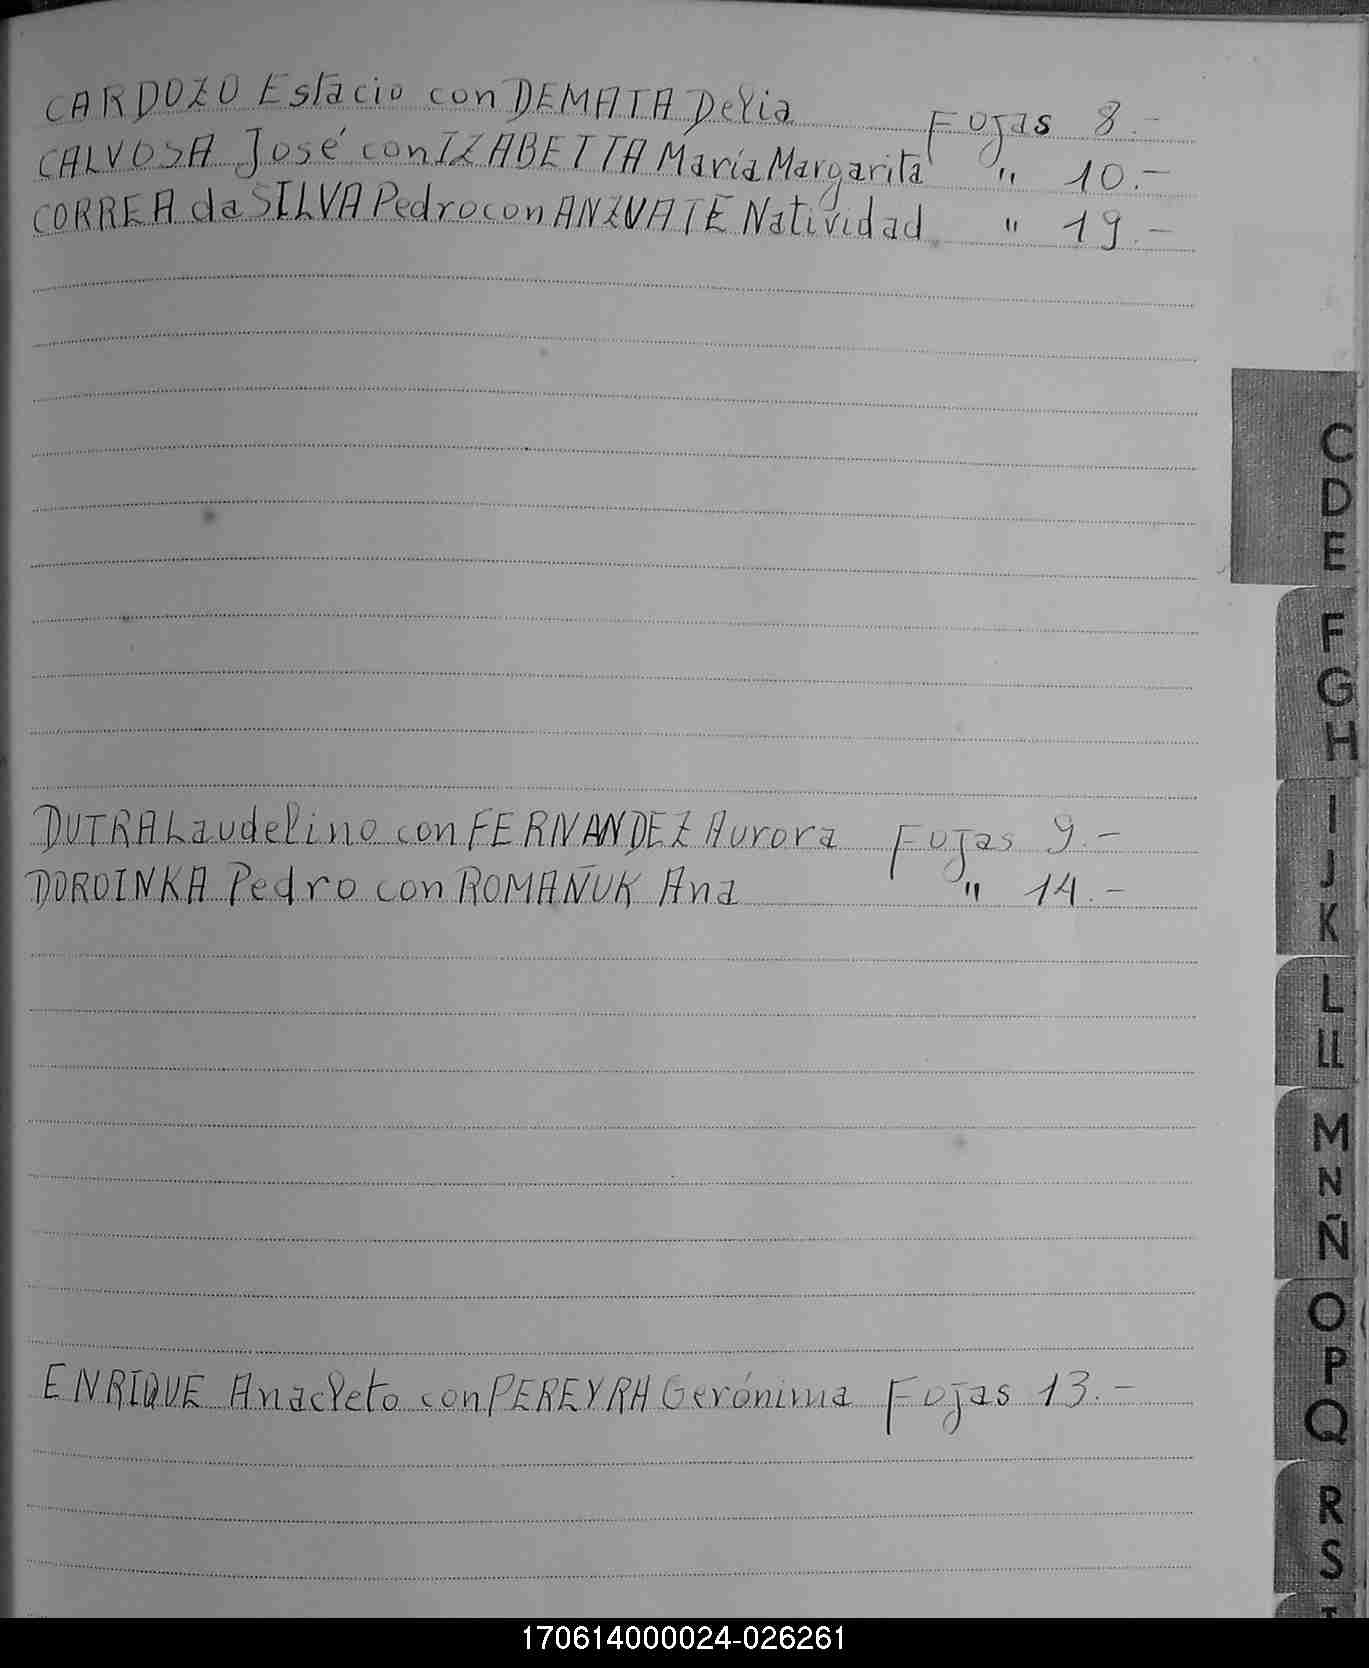 CARDOZO Estacio con DEMATA Delia Fojas 8.-
CALVOSA José con IZABETTA María Margarita " 10.-
CORREA da SILVA Pedro con ANZUATE Natividad " 19.-
DUTRA Laudelino con FERNANDEZ Aurora Fojas 9.-
DOROINKA Pedro con ROMAÑUK Ana " 14.-
ENRIQUE Anacleto con PEREYRA Gerónima Fojas 13.-
C
D
E
F
G
H
I
J
K
L
LL
M
N
Ñ
O
P
Q
R
S
170614000024-026261